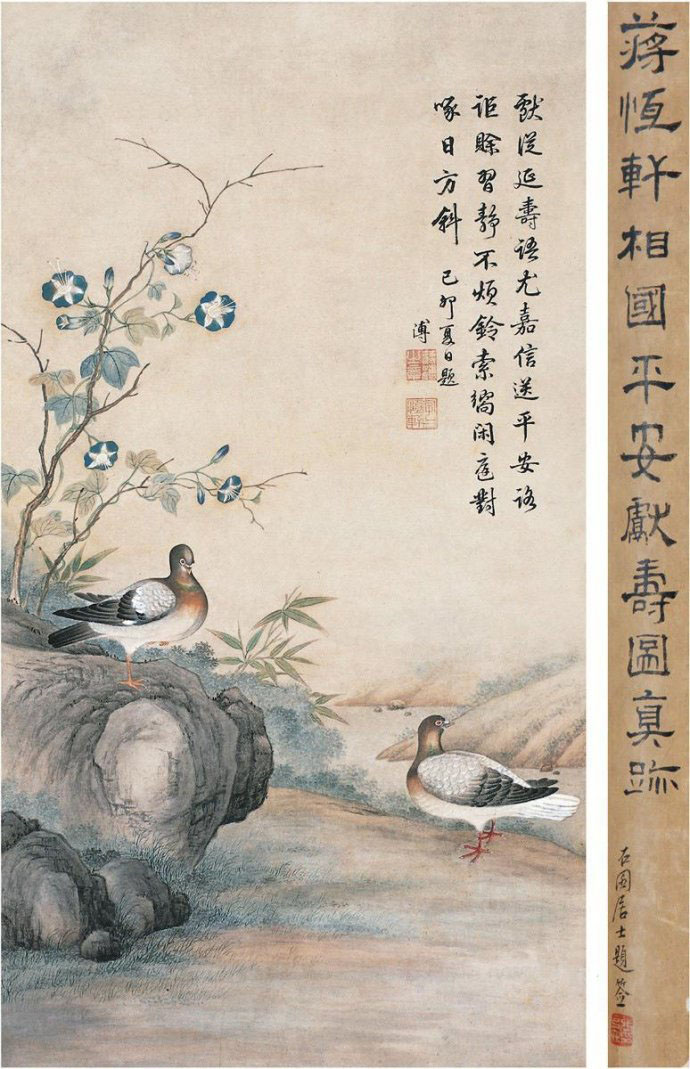 獻從延壽語尤嘉信送平安路
詎賒習靜不煩鈴索繙閑庭對
啄日方斜
己卯夏日題
溥
蔣恆軒相國平安獻壽圖真跡
石園居士題簽